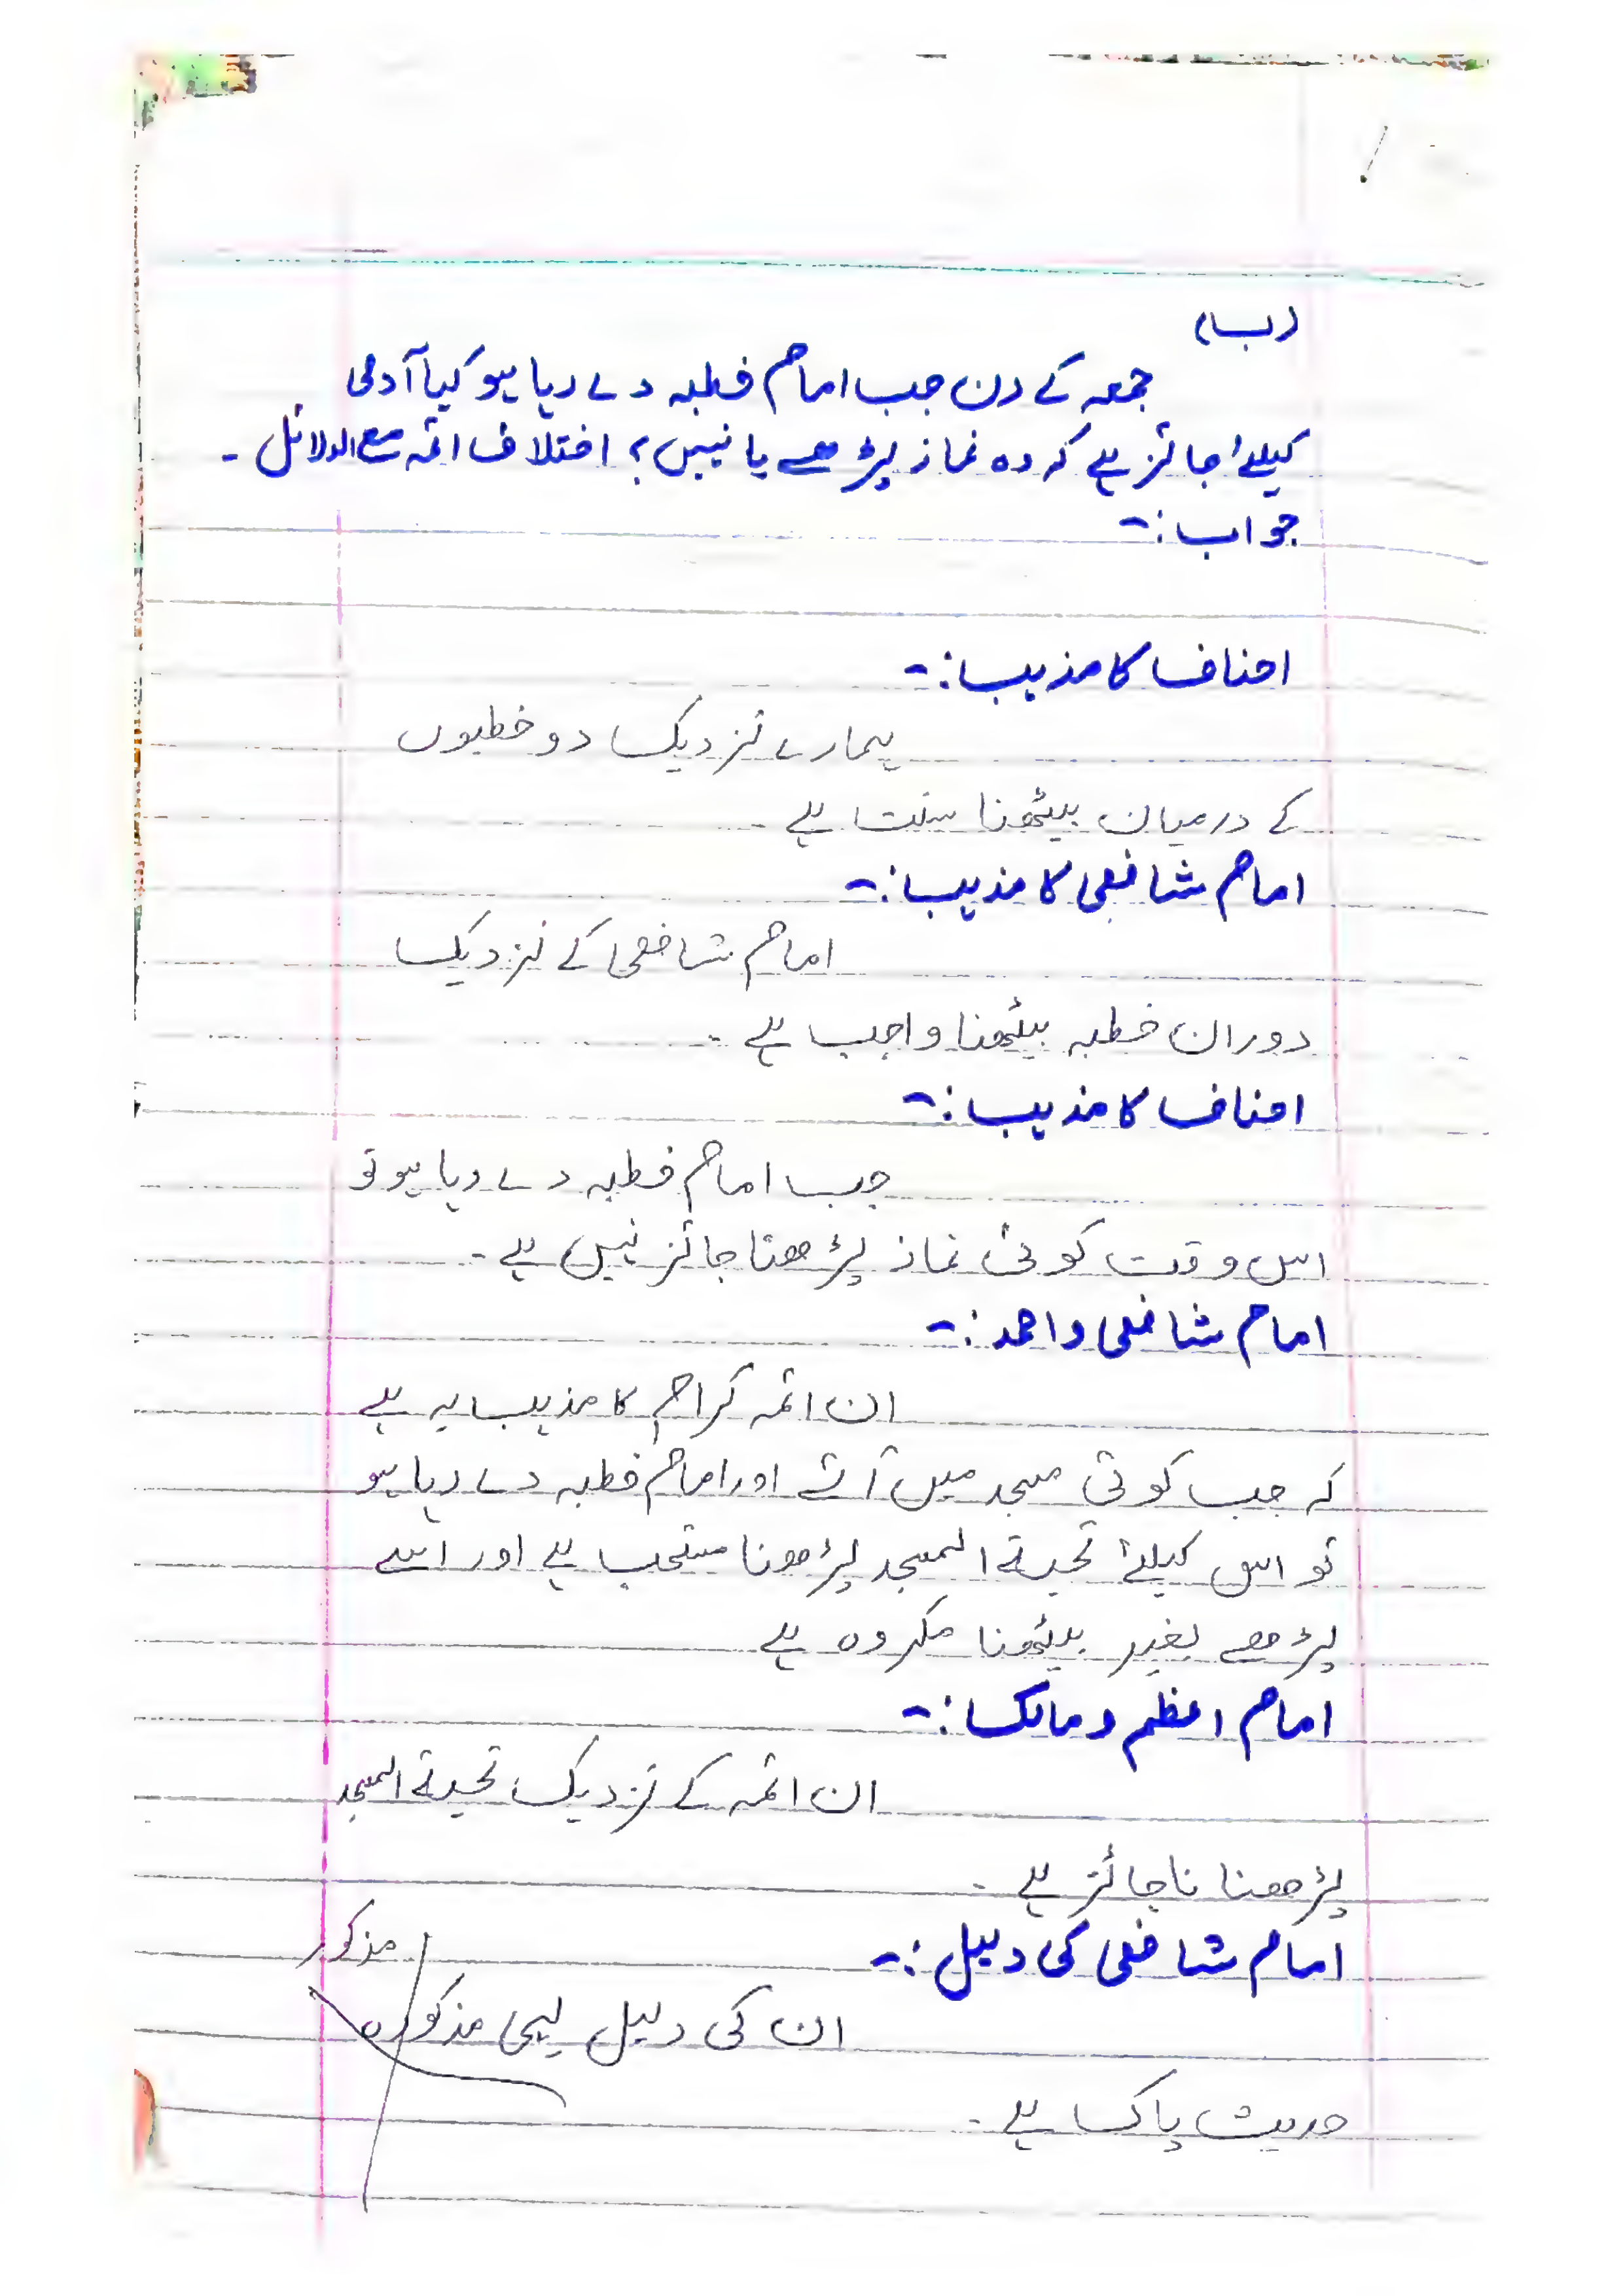 (ب)
جمعہ کے دن جب امام خطبہ دے رہا ہو کیا آدمی
کیلئے جائز ہے کہ وہ نماز پڑھے یا نہیں؟ اختلاف ائمہ مع الدلائل ۔
جواب :-
احناف کا مذہب :-
ہمارے نزدیک دو خطبوں
کے درمیان بیٹھنا سنت ہے ۔
امام شافعی کا مذہب :-
امام شافعی کے نزدیک
دوران خطبہ بیٹھنا واجب ہے ۔
احناف کا مذہب :-
جب امام خطبہ دے رہا ہو تو
اس وقت کوئی نماز پڑھنا جائز نہیں ہے ۔
امام شافعی و احمد :-
ان ائمہ کرام کا مذہب یہ ہے
کہ جب کوئی مسجد میں آئے اور امام خطبہ دے رہا ہو
تو اس کیلئے تحیۃ المسجد پڑھنا مستحب ہے اور اسے
پڑھے بغیر بیٹھنا مکروہ ہے
امام اعظم و مالک :-
ان ائمہ کے نزدیک تحیۃ المسجد
پڑھنا ناجائز ہے ۔
امام شافعی کی دلیل :-
مذکور
ان کی دلیل یہی مذکورہ
حدیث پاک ہے ۔